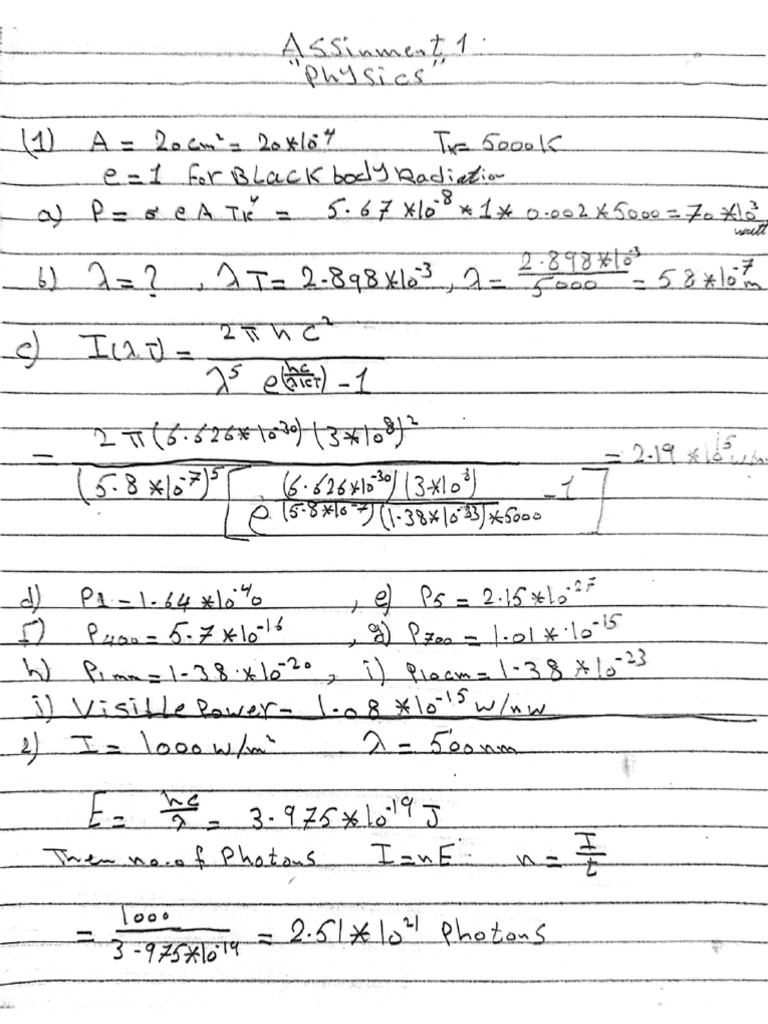 Assinment 1
"Physics"
(1) A = 20cm² = 20*10⁻⁴ Tk = 5000K
e = 1 for Black body Radiation
a) P = σ e A Tk⁴ = 5.67 *10⁻⁸ * 1 * 0.002 * 5000 = 70 *10³ watt
b) λ = ? , λT = 2.898*10⁻³ , λ = 2.898*10⁻³ / 5000 = 5.8*10⁻⁷ m
c) I(λT) = 2πhc² / λ⁵ e^(hc/λKT) - 1
= 2π(6.626*10⁻³⁰)(3*10⁸)² / (5.8*10⁻⁷)⁵ [e^((6.626*10⁻³⁰)(3*10⁸) / (5.8*10⁻⁷)(1.38*10⁻³³)*5000) - 1] = 2.19 *10¹⁵
d) P1 = 1.64 *10⁻⁴⁰ , e) P5 = 2.15*10⁻²⁷
f) P400 = 5.7*10⁻¹⁶ , g) P700 = 1.01*10⁻¹⁵
h) P1mm = 1.38*10⁻²⁰ , i) P10cm = 1.38 *10⁻²³
j) Visible Power = 1.08 *10⁻¹⁵ w/nw
2) I = 1000 w/m² λ = 500nm
E = hc/λ = 3.975*10⁻¹⁹ J
Then no. of Photons I = nE n = I/t
= 1000 / 3.975*10⁻¹⁹ = 2.51*10²¹ Photons